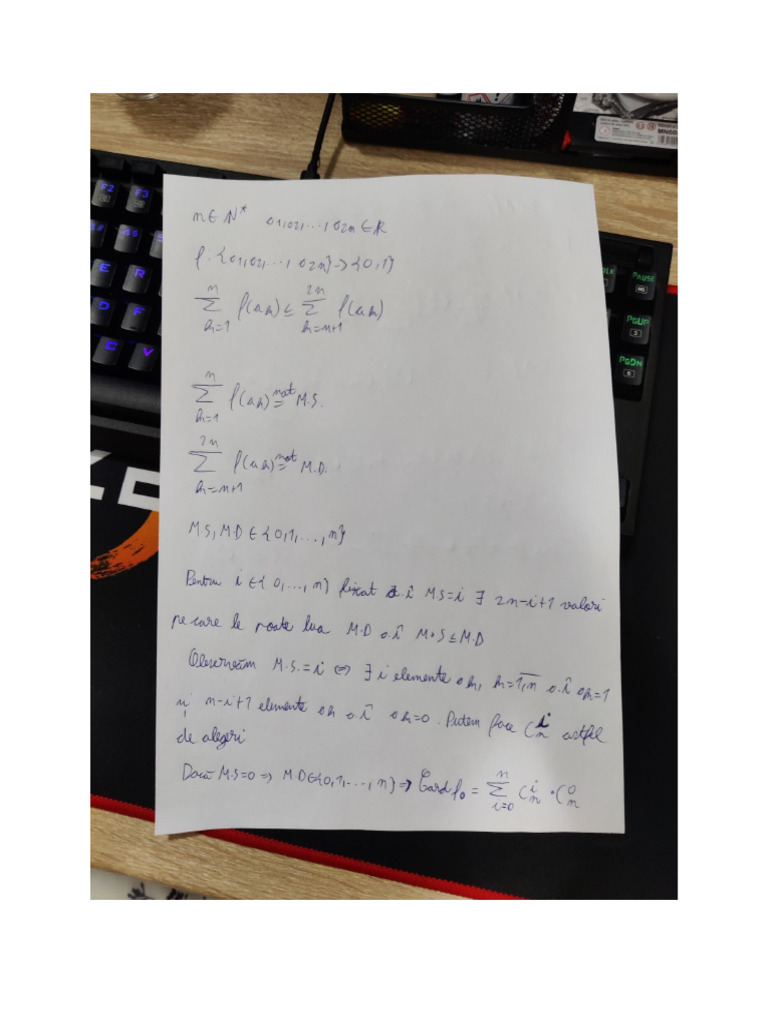 n ∈ N* a1,a2,...,a2n ∈ R
f: {a1,a2,...,a2n} → {0,1}
∑_{k=1}^{n} f(ak) ≤ ∑_{k=n+1}^{2n} f(ak)
∑_{k=1}^{n} f(ak) not= M.S.
∑_{k=n+1}^{2n} f(ak) not= M.D.
M.S, M.D ∈ {0,1,...,n}
Pentru i ∈ {0,...,n} fixat a.î MS=i ∃ 2n-i+1 valori
pe care le poate lua M.D a.î M.S ≤ M.D
Observăm M.S.=i ⇔ ∃ i elemente ak, k=1,n a.î ak=1
și n-i+1 elemente ak a.î ak=0. Putem face C_n^i astfel
de alegeri
Dacă M.S=0 ⇒ M.D ∈ {0,1,...,n} ⇒ Card f0 = ∑_{i=0}^{n} C_n^i · C_n^0
F2
F3
E
R
D
F
C
V
PAUSE
PGUP
3
PGDN